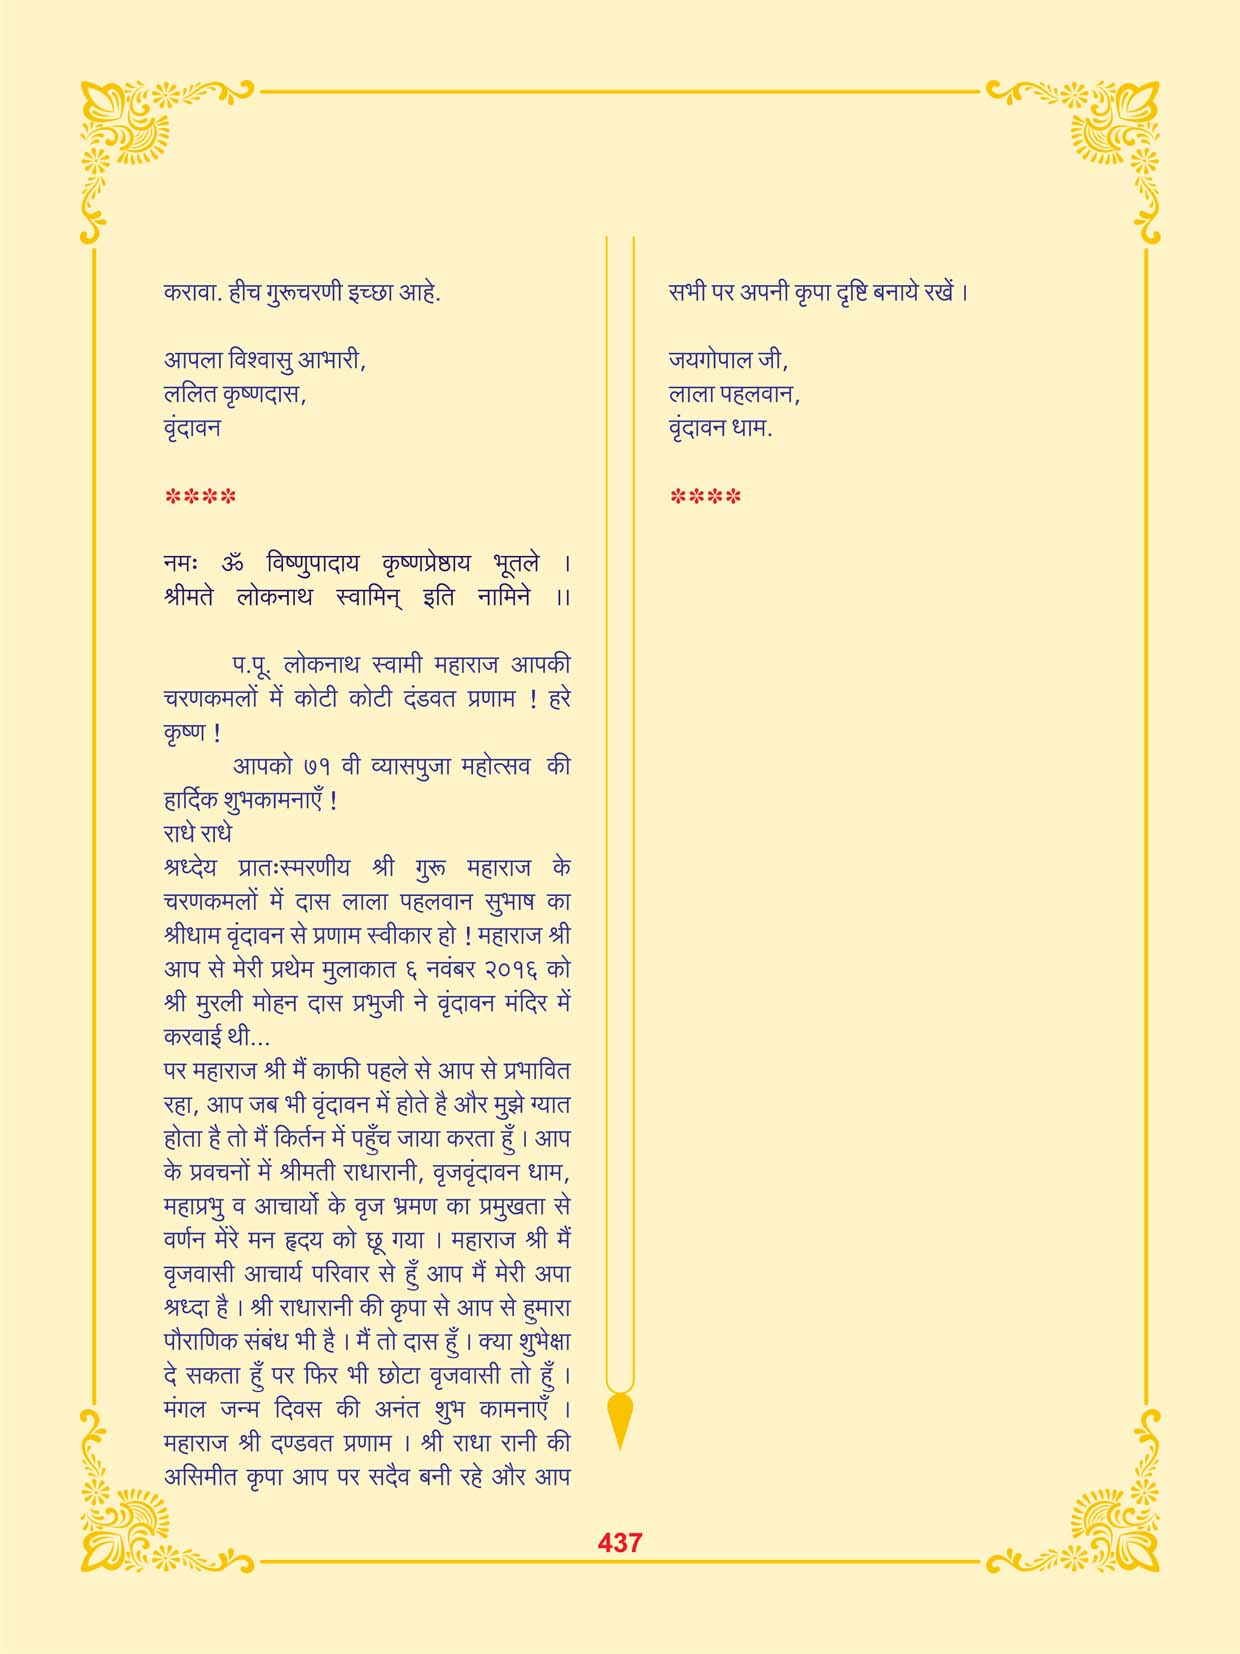 करावा. हीच गुरूचरणी इच्छा आहे.
आपला विश्वासु आभारी,
ललित कृष्णदास,
वृंदावन
****
नमः ॐ विष्णुपादाय कृष्णप्रेष्ठाय भूतले ।
श्रीमते लोकनाथ स्वामिन् इति नामिने ।।
प.पू. लोकनाथ स्वामी महाराज आपकी
चरणकमलों में कोटी कोटी दंडवत प्रणाम ! हरे
कृष्ण !
आपको ७१ वी व्यासपुजा महोत्सव की
हार्दिक शुभकामनाएँ !
राधे राधे
श्रध्देय प्रातःस्मरणीय श्री गुरू महाराज के
चरणकमलों में दास लाला पहलवान सुभाष का
श्रीधाम वृंदावन से प्रणाम स्वीकार हो ! महाराज श्री
आप से मेरी प्रथेम मुलाकात ६ नवंबर २०१६ को
श्री मुरली मोहन दास प्रभुजी ने वृंदावन मंदिर में
करवाई थी...
पर महाराज श्री मैं काफी पहले से आप से प्रभावित
रहा, आप जब भी वृंदावन में होते है और मुझे ग्यात
होता है तो मैं किर्तन में पहुँच जाया करता हुँ । आप
के प्रवचनों में श्रीमती राधारानी, वृजवृंदावन धाम,
महाप्रभु व आचार्यो के वृज भ्रमण का प्रमुखता से
वर्णन मेंरे मन हृदय को छू गया । महाराज श्री मैं
वृजवासी आचार्य परिवार से हुँ आप मैं मेरी अपा
श्रध्दा है । श्री राधारानी की कृपा से आप से हुमारा
पौराणिक संबंध भी है । मैं तो दास हुँ । क्या शुभेक्षा
दे सकता हुँ पर फिर भी छोटा वृजवासी तो हुँ ।
मंगल जन्म दिवस की अनंत शुभ कामनाएँ ।
महाराज श्री दण्डवत प्रणाम । श्री राधा रानी की
असिमीत कृपा आप पर सदैव बनी रहे और आप
सभी पर अपनी कृपा दृष्टि बनाये रखें ।
जयगोपाल जी,
लाला पहलवान,
वृंदावन धाम.
****
437